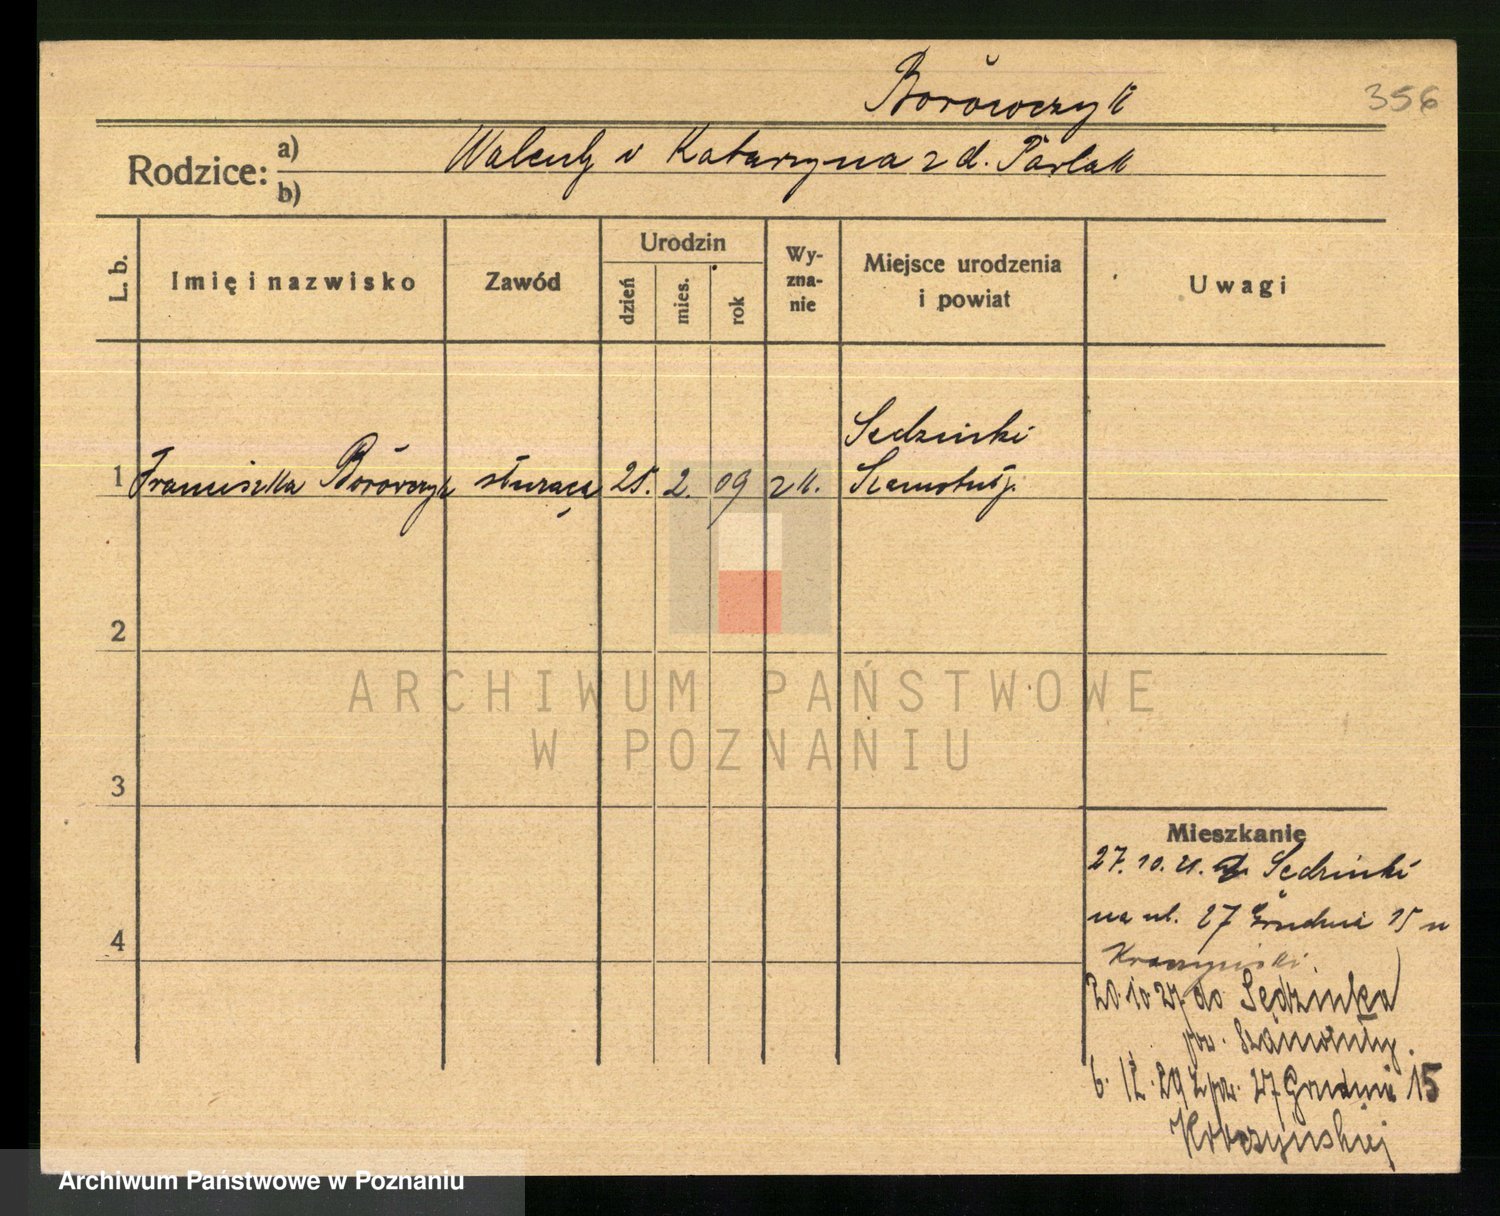 Borówczyk
356
Rodzice: a) b)
Walenty i Katarzyna z d. Pawlak
L. b.
Imię i nazwisko
Zawód
Urodzin
dzień
mies.
rok
Wy-
zna-
nie
Miejsce urodzenia
i powiat
Uwagi
Sędzinki
1 Franciszka Borówczyk służąca 25. 2. 09 rk. Szamotuły
2
3
4
Mieszkanie
27. 10. Sędzinki
na ul. 27 Grudnia 15 u
20.10.27 do Sędzinka
pow. Szamotuły
6. 12. 29 27 Grudnia 15
Kraszyńskiej
ARCHIWUM PAŃSTWOWE
W POZNANIU
Archiwum Państwowe w Poznaniu